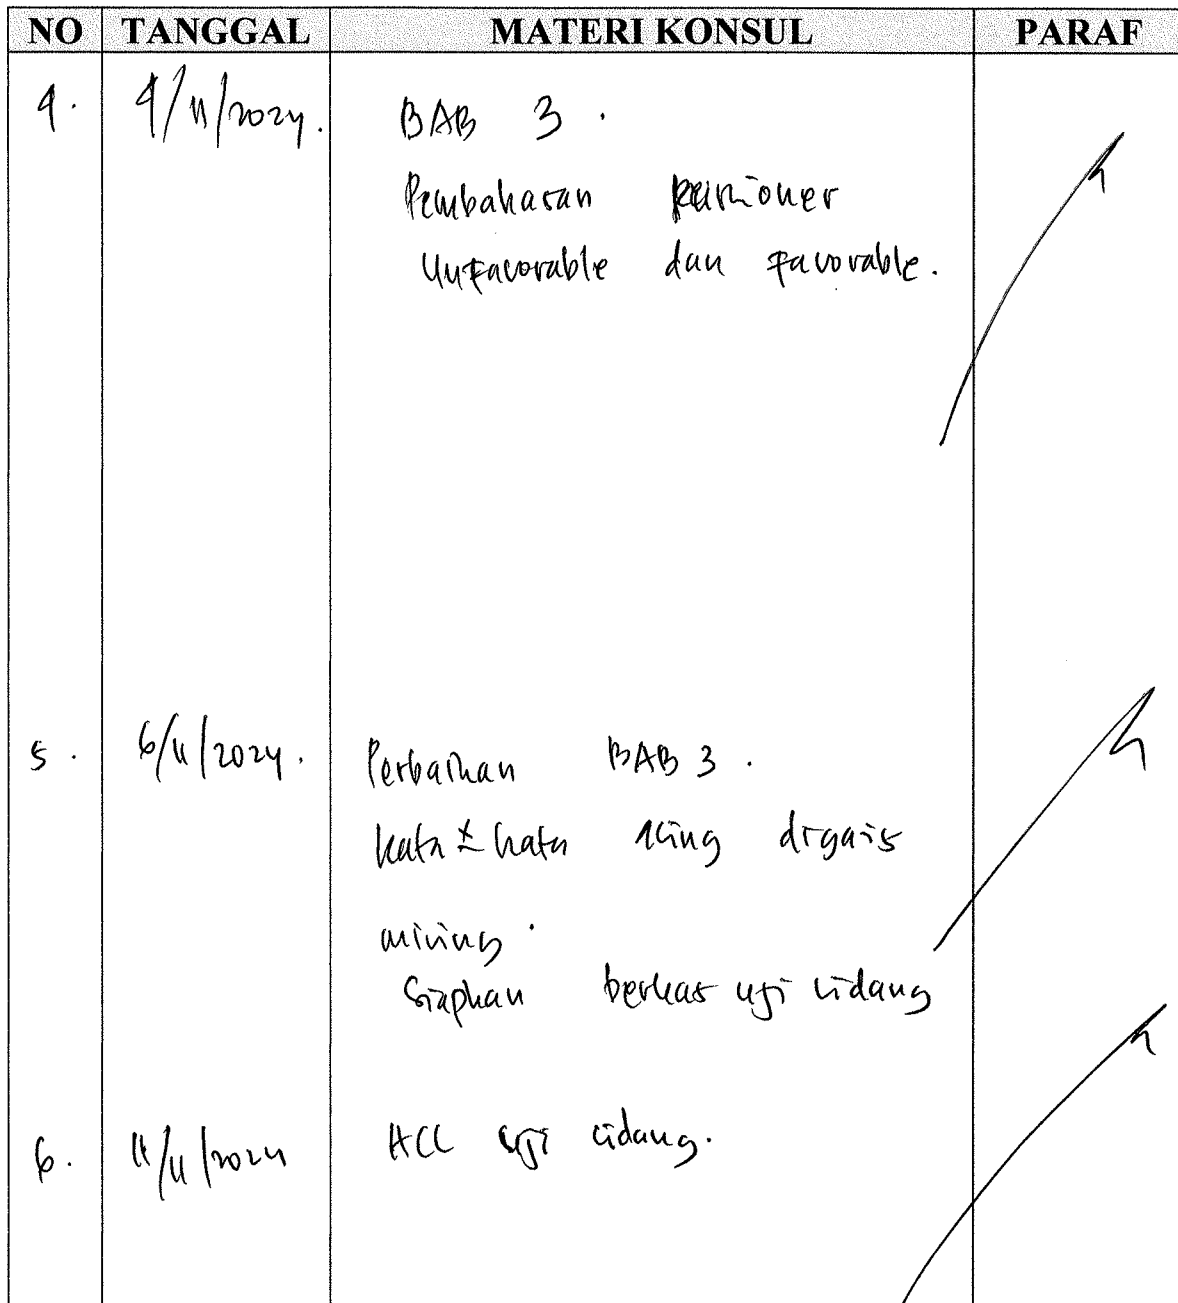 NO TANGGAL MATERI KONSUL PARAF
4. 4/11/2024. BAB 3.
Pembahasan kuisioner
Unfavorable dan favorable.
5. 6/11/2024. Perbaikan BAB 3.
kata ± kata asing digaris
miring.
Siapkan berkas uji sidang
6. 11/11/2024 ACC uji sidang.